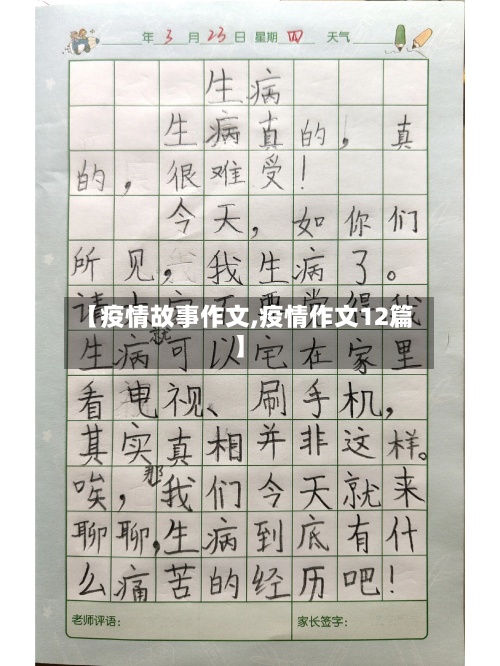 年3月23日 星期四 天气
生病
生病真的，真
的，很难受！
今天，如你们
所见，我生病了。
【疫情故事作文,疫情作文12篇
】
生病就可以宅在家里
看电视、刷手机，
其实真相并非这样。
唉，那我们今天就来
聊聊，生病到底有什
么痛苦的经历吧！
老师评语： 家长签字：